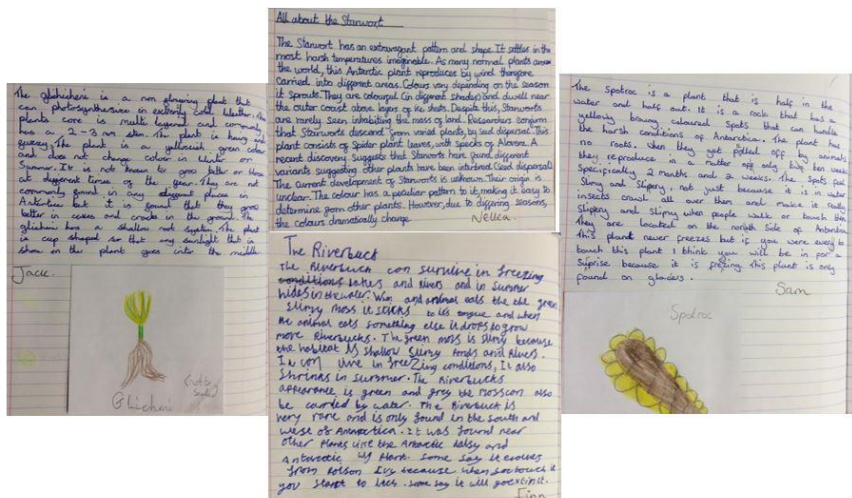 The glichieni is a non flowering plant that
can photosynthesise in extremly cold weather. The
plants core is multi legend and commonly
has a 2-3 mm skin. The plant is hairy and
The plant is a yellowish green colour
and does not change colour in Winter or
Summer. It is not known to grow better or worse
in different times of the year. They are not
commonly found in any place in
Antartica but it is found that they grow
better in caves and cracks in the ground. The
glichieni has a shallow root system. The plant
is cup shaped so that any sunlight that is
shone on the plant goes into the middle
Jack.
(not to scale)
Glichieni
All about the Starwort
The Starwort has an extravagant pattern and shape. It settles in the
most harsh temperatures imaginable. As many normal plants across
the world, this Antarctic plant reproduces by wind therefore
carried into different areas. Colours vary depending on the season
it sprouts. They are colourful (in different shades) and dwell near
the outer coast above layers of ice sheets. Despite this, Starworts
are rarely seen inhabiting the mass of land. Researchers confirm
that Starworts descend from varied plants, by seed dispersal. This
plant consists of Spider plant leaves, with specks of Alovera. A
recent discovery suggests that Starworts have found different
variants suggesting other plants have been interbred (seed dispersal)
The current development of Starworts is unknown. Their origin is
unclear. The colour has a peculiar pattern to it, making it easy to
determine from other plants. However, due to differing seasons,
the colours dramatically change.
Nellea
The Riverbuck
The Riverbuck can survive in freezing
lakes and rivers and in summer
hides in the water. Wen and animal eats the the green
slimy moss it sticks to it's tongue and when
the animal eats something else it drops to grow
more Riverbucks. The green moss is slimy because
the habitat is shallow slimy ponds and rivers.
It can live in freezing conditions, It also
shrinks in summer. The Riverbucks
appearance is green and grey the moss can also
be carried by water. The Riverbuck is
very rare and is only found in the south and
west of Antarctica. It was found near
other plants like the Antarctic daisy and
Antarctic lily plant. Some say it evolves
from Poison Ivy because when you touch it
you start to itch. Some say it will go extinct.
Finn
The Spotroc is a plant that is half in the
water and half out. It is a rock that has a
yellowy browny coloured spots that can handle
the harsh conditions of Antarctica. The plant has
no roots. When they get pulled off by animals
they reproduce in a matter off only five ten weeks
Specifically 2 months and 2 weeks. The Spots feel
Slimy and Slipery, not just because it is in water
insects crawl all over them and make it really
Slipery and Slipny when people walk or touch them
They are located on the north Side of Antarctica
This plant never freezes but if you were ever to
touch this plant I think you will be in for a
suprise because it is freezing. This plant is only
found on glaciers.
Sam
Spotroc